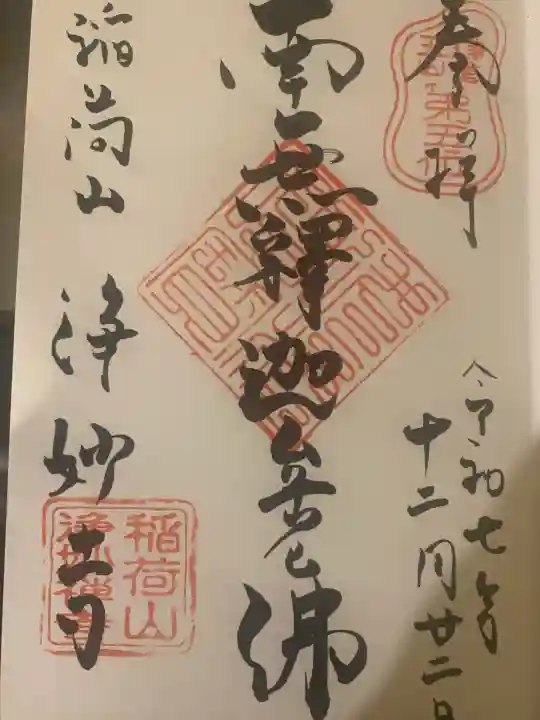 奉拝
令和七年
十二月廿二日
南無釋迦牟尼佛
稲荷山 浄妙寺
稲荷山
浄妙禅寺